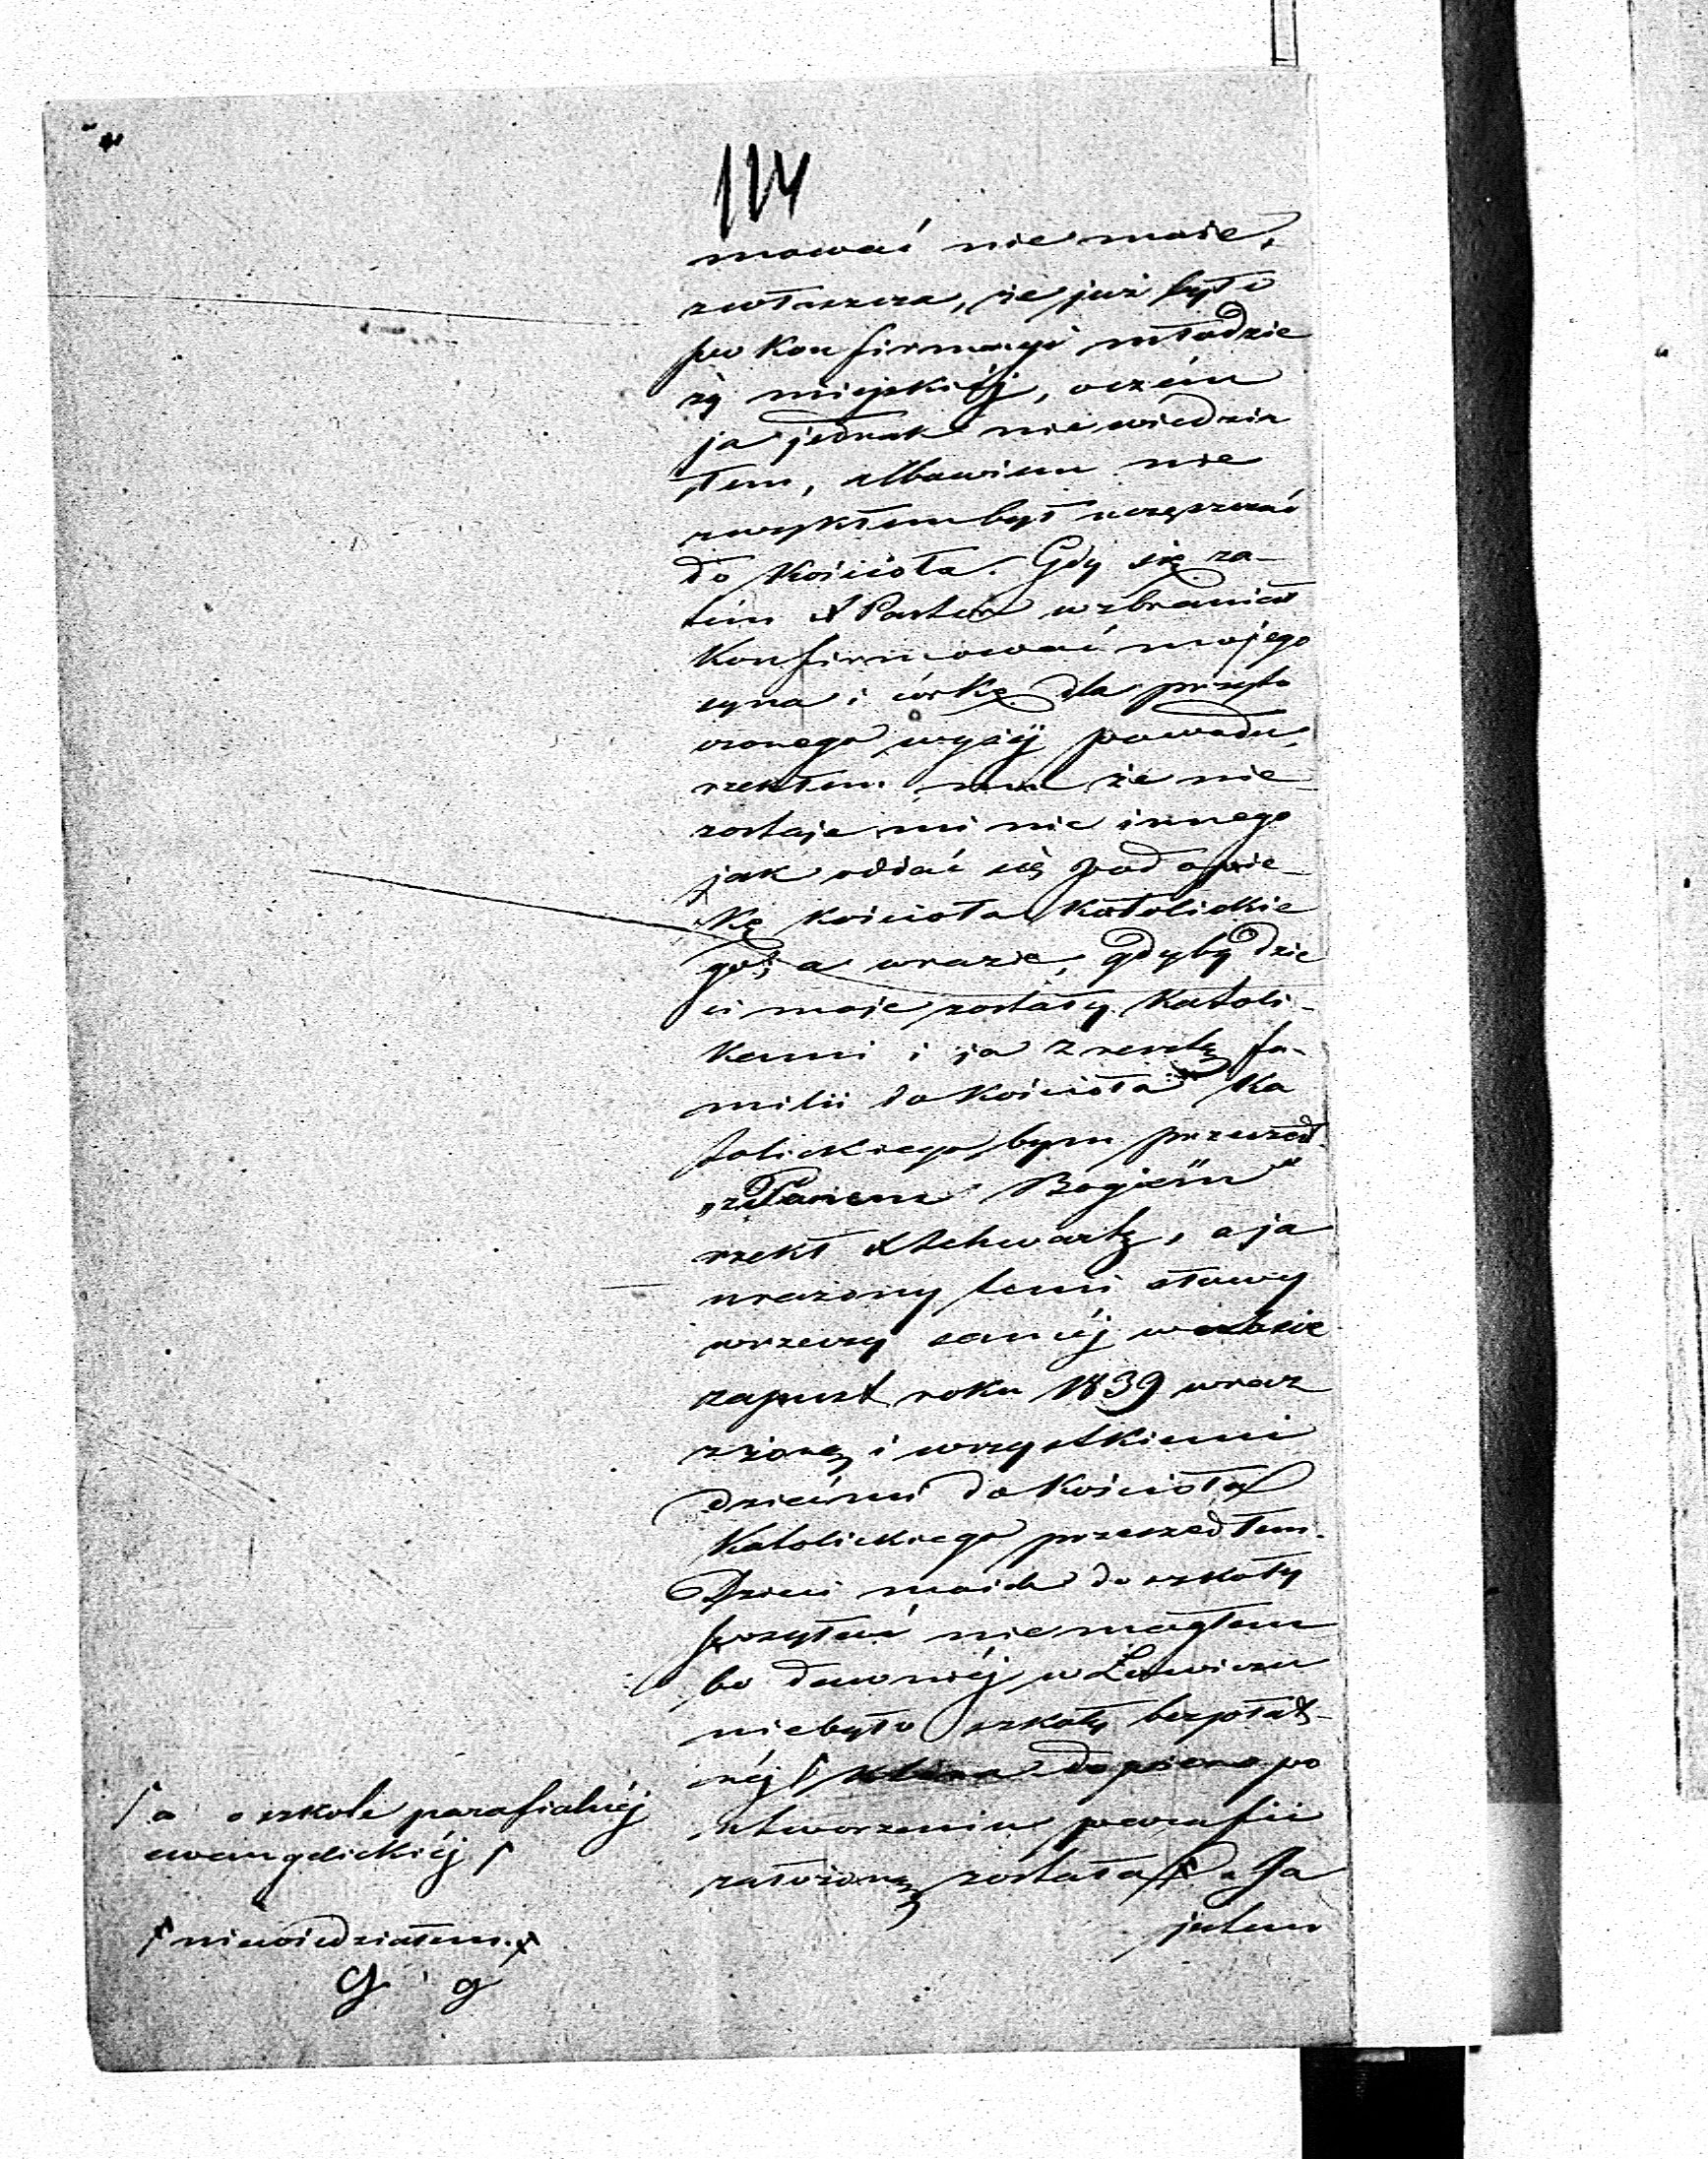 114
mować nie może,
zwłaszcza, że już było
po konfirmacyi młodzie
ży miejskiéj, oczém
ja jednak nie wiedzia
łem, albowiem nie
zwykłem był uczęszczać
do kościoła. Gdy się za-
tém X Pastor wzbraniał
Konfirmować mojego
syna i córkę dla przyto
czonego wyżéj powodu,
rzekłem mu że nie
zostaje mi nic innego
jak oddać się pod opie-
kę kościoła katolickie
go, a wrazie, gdyby dzie
ci moje zostały katoli-
kami i ja z resztą fa-
milii do kościoła ka
tolickiego bym przeszedł.
„z Panem Bogiem"
rzekł X Schwartz, a ja
urażony temi słowy
wrzeczy saméj w czasie
zapust roku 1839 wraz
z żoną i wszystkiemi
dziećmi do kościoła
Katolickiego przeszedłem.
Dzieci moich do szkoły
posyłać nie mogłem
bo dawniéj w Łowiczu
niebyło szkoły bezpłat-
néj która dopiero po
utworzeniu parafii
założoną została. Ja
jestem
a o szkole parafialnéj
ewangelickiéj
niewiedziałem.